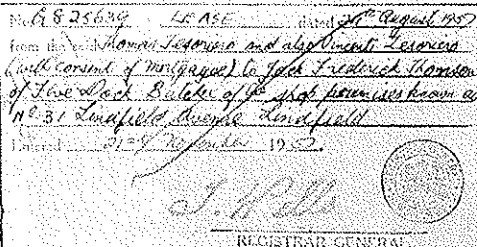 No. G825639 LEASE dated 29th August 1957
from the said Thomas Tesoriero and also Vincenti Tesoriero
(with consent of mortgagee) to Jack Frederick Thomson
of Five Dock Butcher of shop premises known as
No. 31 Lindfield Avenue Lindfield
Entered 21st November 1957
REGISTRAR GENERAL